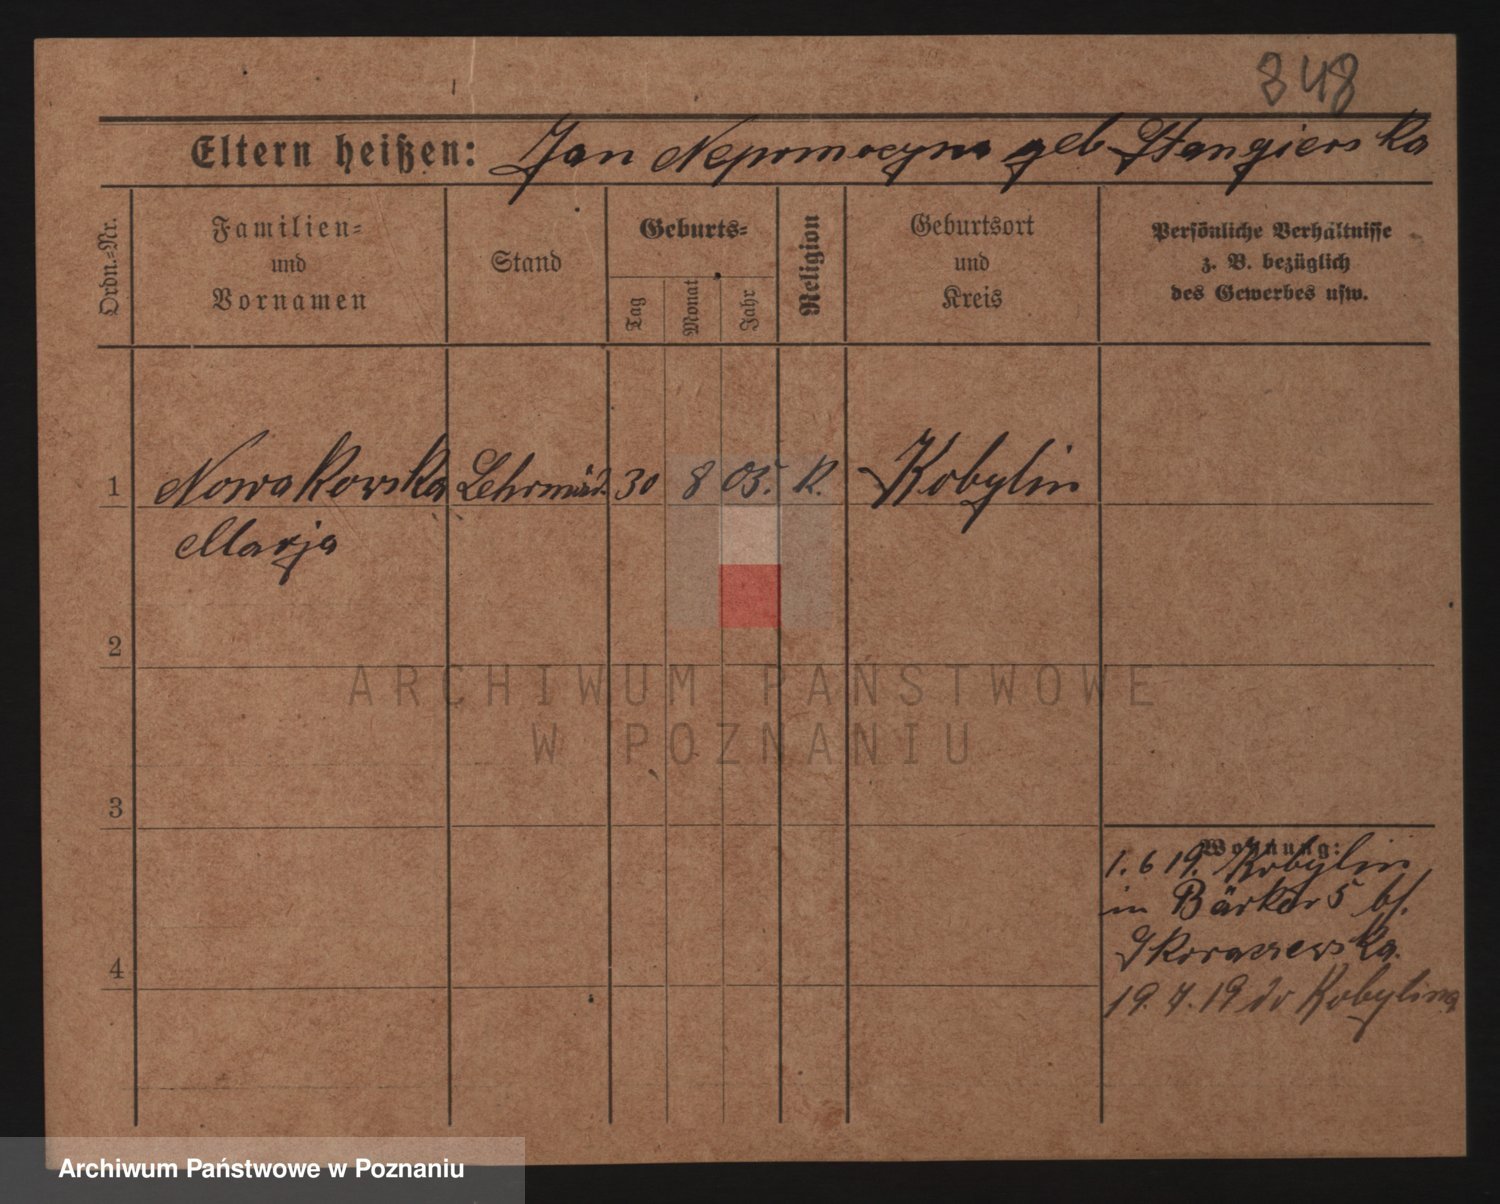 348
Eltern heißen: Jan Nepomocyna geb Stangierska
Ordn.-Nr.
Familien-
und
Vornamen
Stand
Geburts-
Tag
Monat
Jahr
Religion
Geburtsort
und
Kreis
Persönliche Verhältnisse
z. B. bezüglich
des Gewerbes usw.
1 Nowakowska Lehrmäd. 30 8 05. K. Kobylin
Marja
2
ARCHIWUM PAŃSTWOWE
W POZNANIU
3
Wohnung:
1. 6 19. Kobylin
in Bärkdr 5 bf.
Skoraszewska.
4
19. 7. 19 do Kobylina
Archiwum Państwowe w Poznaniu